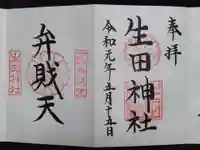 奉拝
生田神社
令和元年五月十五日
弁財天